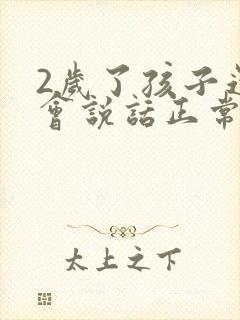 2歲了孩子還
會說話正常
太上之下